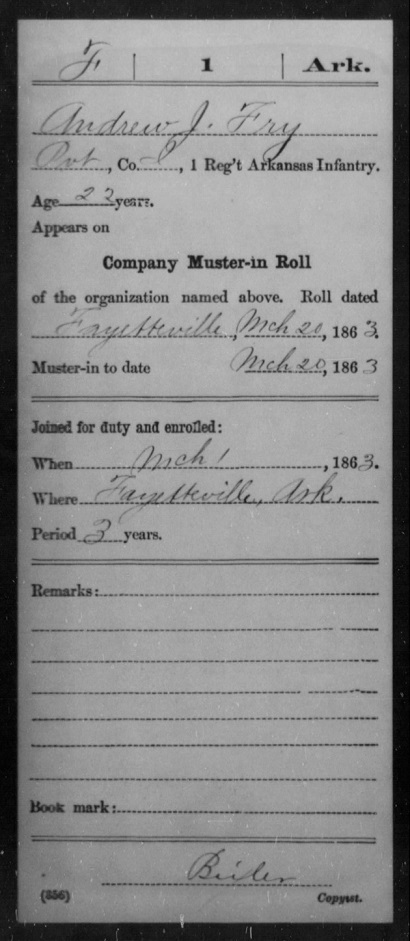 F | 1 | Ark.
Andrew J. Fry
Pvt, Co. I, 1 Reg't Arkansas Infantry.
Age 23 years.
Appears on
Company Muster-in Roll
of the organization named above. Roll dated
Fayetteville, Mch 20, 1863.
Muster-in to date Mch 20, 1863
Joined for duty and enrolled:
When Mch 1, 1863.
Where Fayetteville, Ark.
Period 3 years.
Remarks:
Book mark:
(356) Copyist.